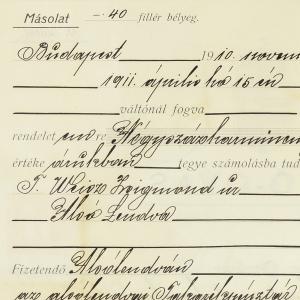 Másolat — . 40 fillér bélyeg.
Budapest 1910. novem
1911. április hó 15 én
váltónál fogva
rendelet em re Négyszázharminc
értéke árukban tegye számolásba tud
T. Weisz Zsigmond ur
Alsó Lendva
Fizetendő Alsólendván
az alsólendvai Takarékpénztár